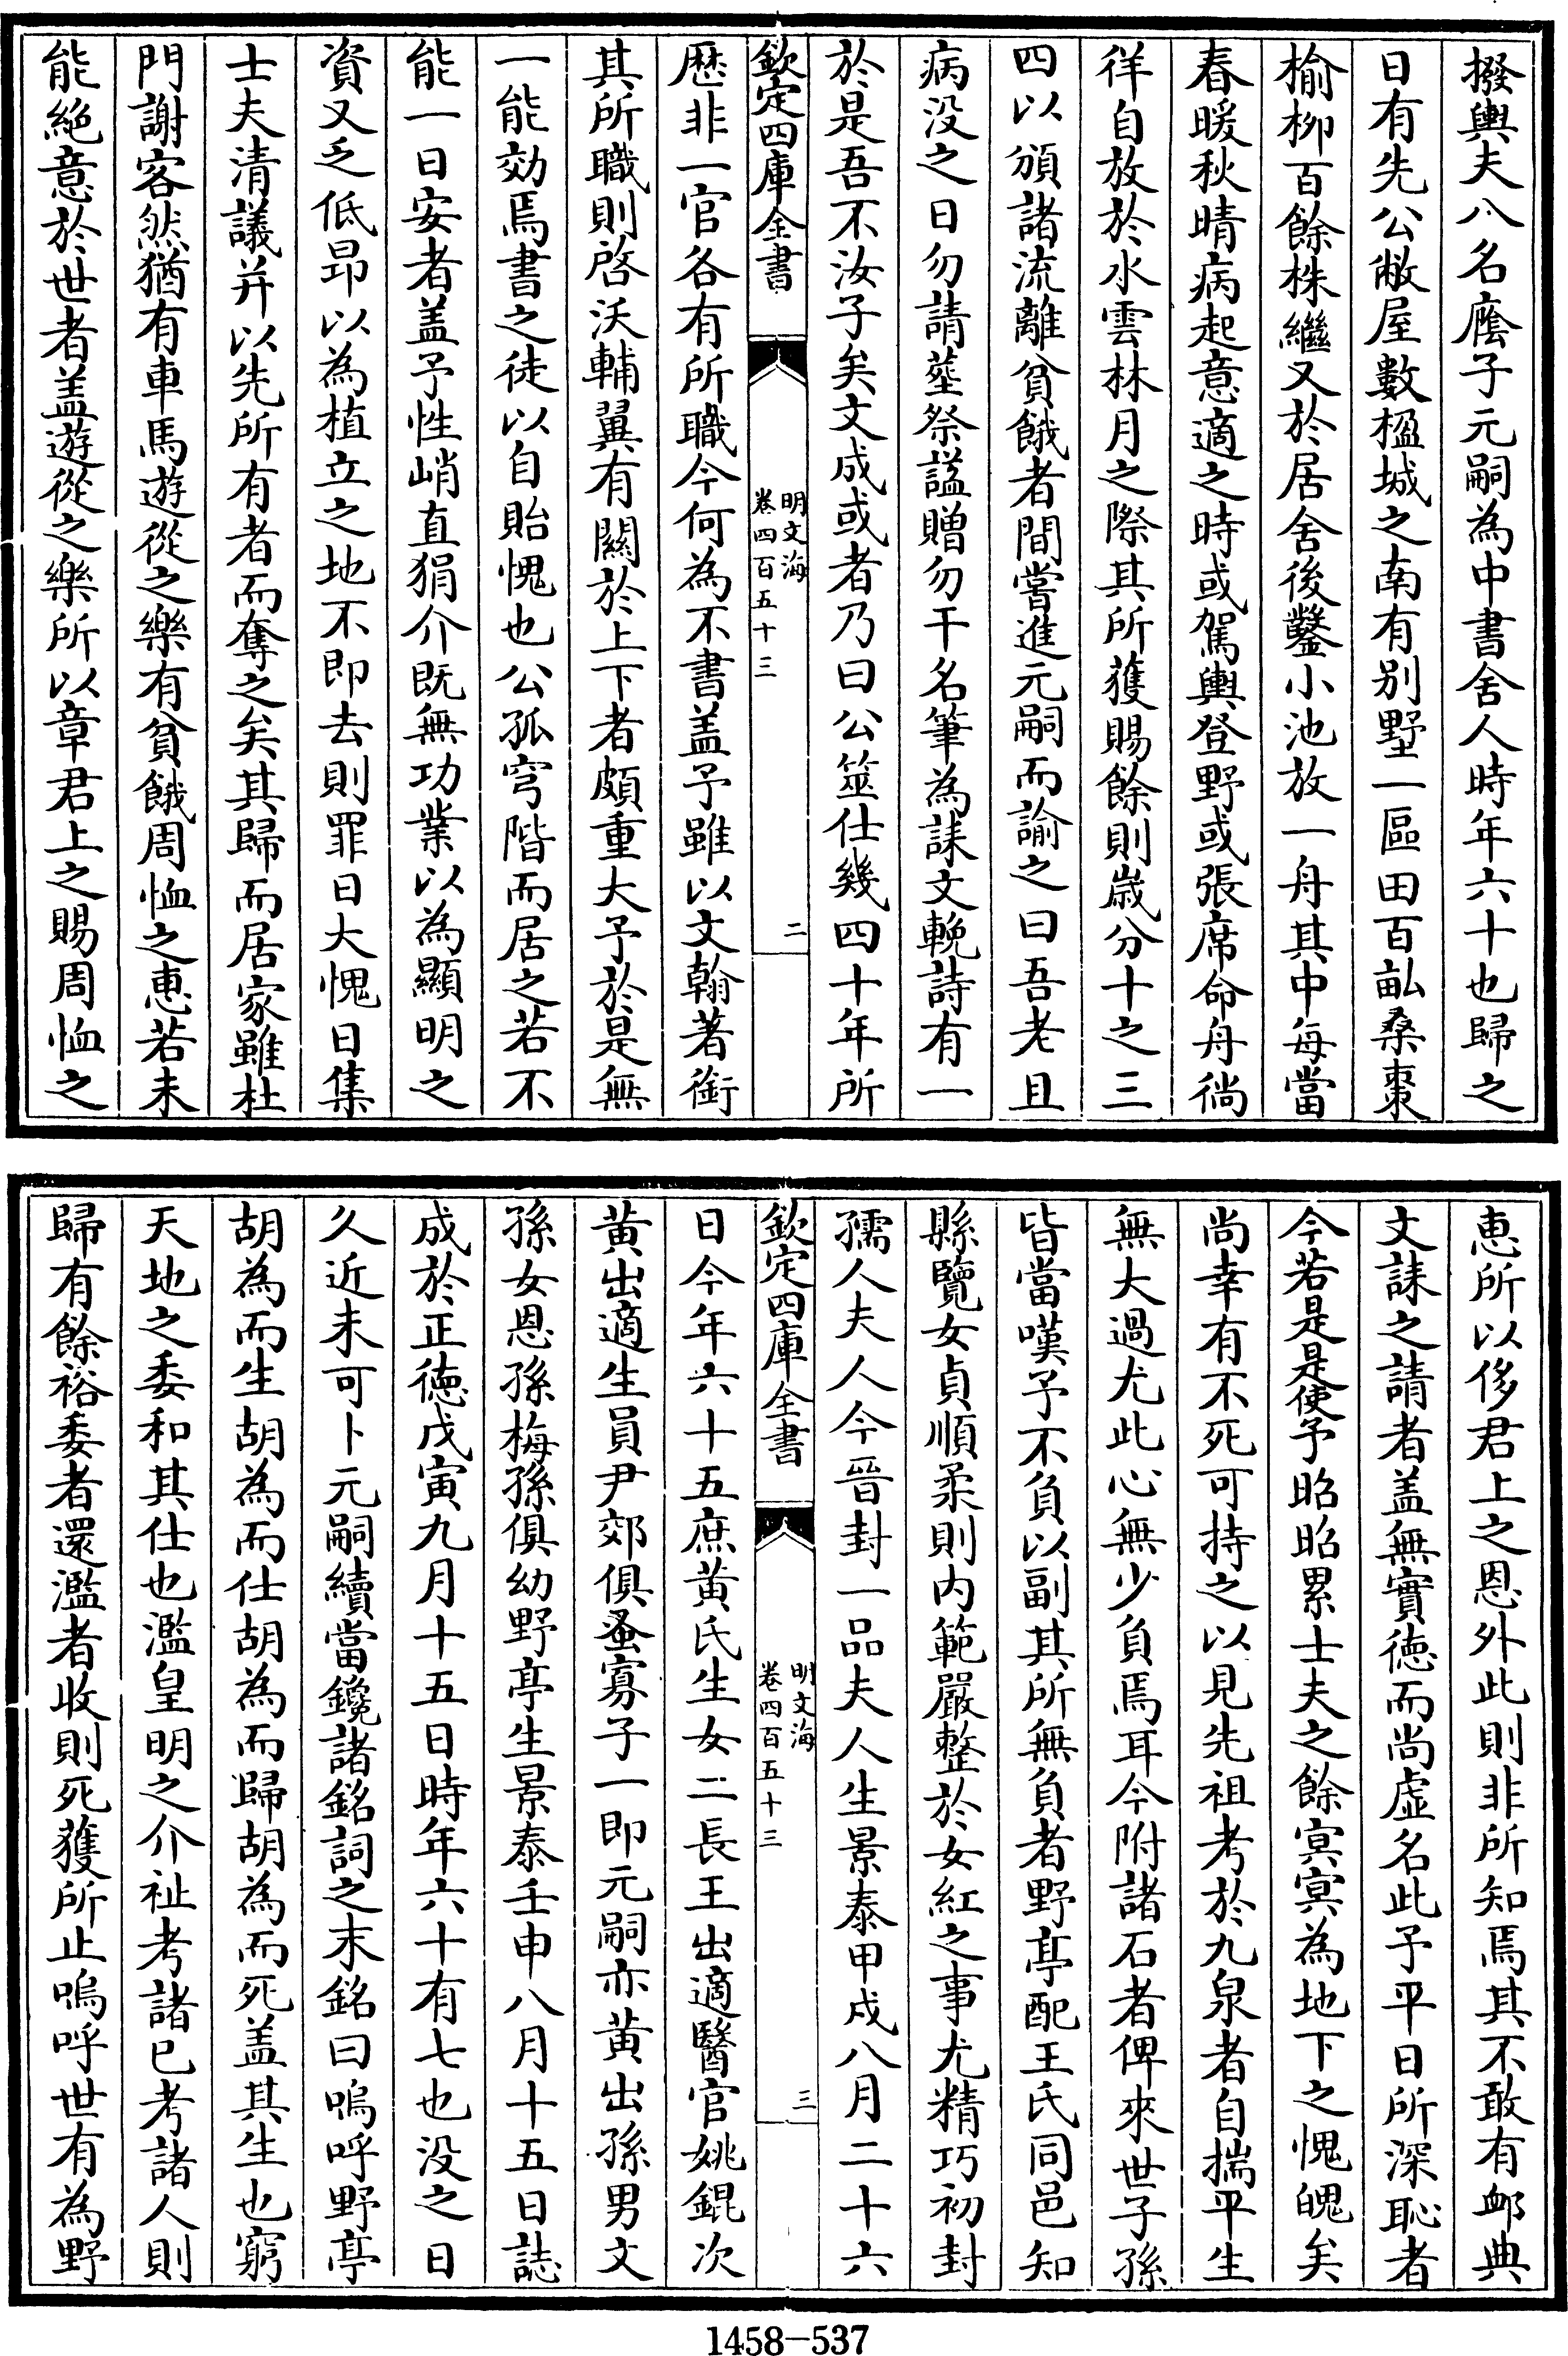 撥輿夫八名廕子元嗣為中書舍人時年六十也歸之
日有先公敝屋數楹城之南有别墅一區田百畆桑棗
榆柳百餘株繼又於居舍後鑿小池放一舟其中每當
春暖秋晴病起意適之時或駕輿登野或張席命舟徜
徉自放於水雲林月之際其所獲賜餘則嵗分十之三
四以頒諸流離貧餓者間嘗進元嗣而諭之曰吾老且
病没之日勿請塟祭諡贈勿干名筆為誄文輓詩有一
於是吾不汝子矣文成或者乃曰公筮仕幾四十年所
欽定四庫全書
明文海
卷四百五十三
二
歴非一官各有所職今何為不書盖予雖以文翰著銜
其所職則啓沃輔翼有關於上下者頗重大予於是無
一能効焉書之徒以自貽愧也公孤穹階而居之若不
能一日安者盖予性峭直狷介既無功業以為顯明之
資又乏低昂以為植立之地不即去則罪日大愧日集
士夫清議并以先所有者而奪之矣其歸而居家雖杜
門謝客然猶有車馬遊從之樂有貧餓周恤之惠若未
能絶意於世者盖遊從之樂所以章君上之賜周恤之
惠所以侈君上之恩外此則非所知焉其不敢有䘏典
文誄之請者盖無實徳而尚虚名此予平日所深恥者
今若是是使予昭昭累士夫之餘冥冥為地下之愧魄矣
尚幸有不死可持之以見先祖考於九泉者自揣平生
無大過尤此心無少負焉耳今附諸石者俾來世子孫
皆當嘆予不負以副其所無負者野亭配王氏同邑知
縣覽女貞順柔則内範嚴整於女紅之事尤精巧初封
孺人夫人今晉封一品夫人生景泰甲戍八月二十六
欽定四庫全書
明文海
卷四百五十三
三
日今年六十五庶黄氏生女二長王出適醫官姚錕次
黄出適生員尹郊俱蚤寡子一即元嗣亦黄出孫男文
孫女恩孫梅孫俱幼野亭生景泰壬申八月十五日誌
成於正徳戊寅九月十五日時年六十有七也没之日
久近未可卜元嗣續當鑱諸銘詞之末銘曰嗚呼野亭
胡為而生胡為而仕胡為而歸胡為而死盖其生也窮
天地之委和其仕也濫皇明之介祉考諸已考諸人則
歸有餘裕委者還濫者收則死獲所止嗚呼世有為野
1458-537